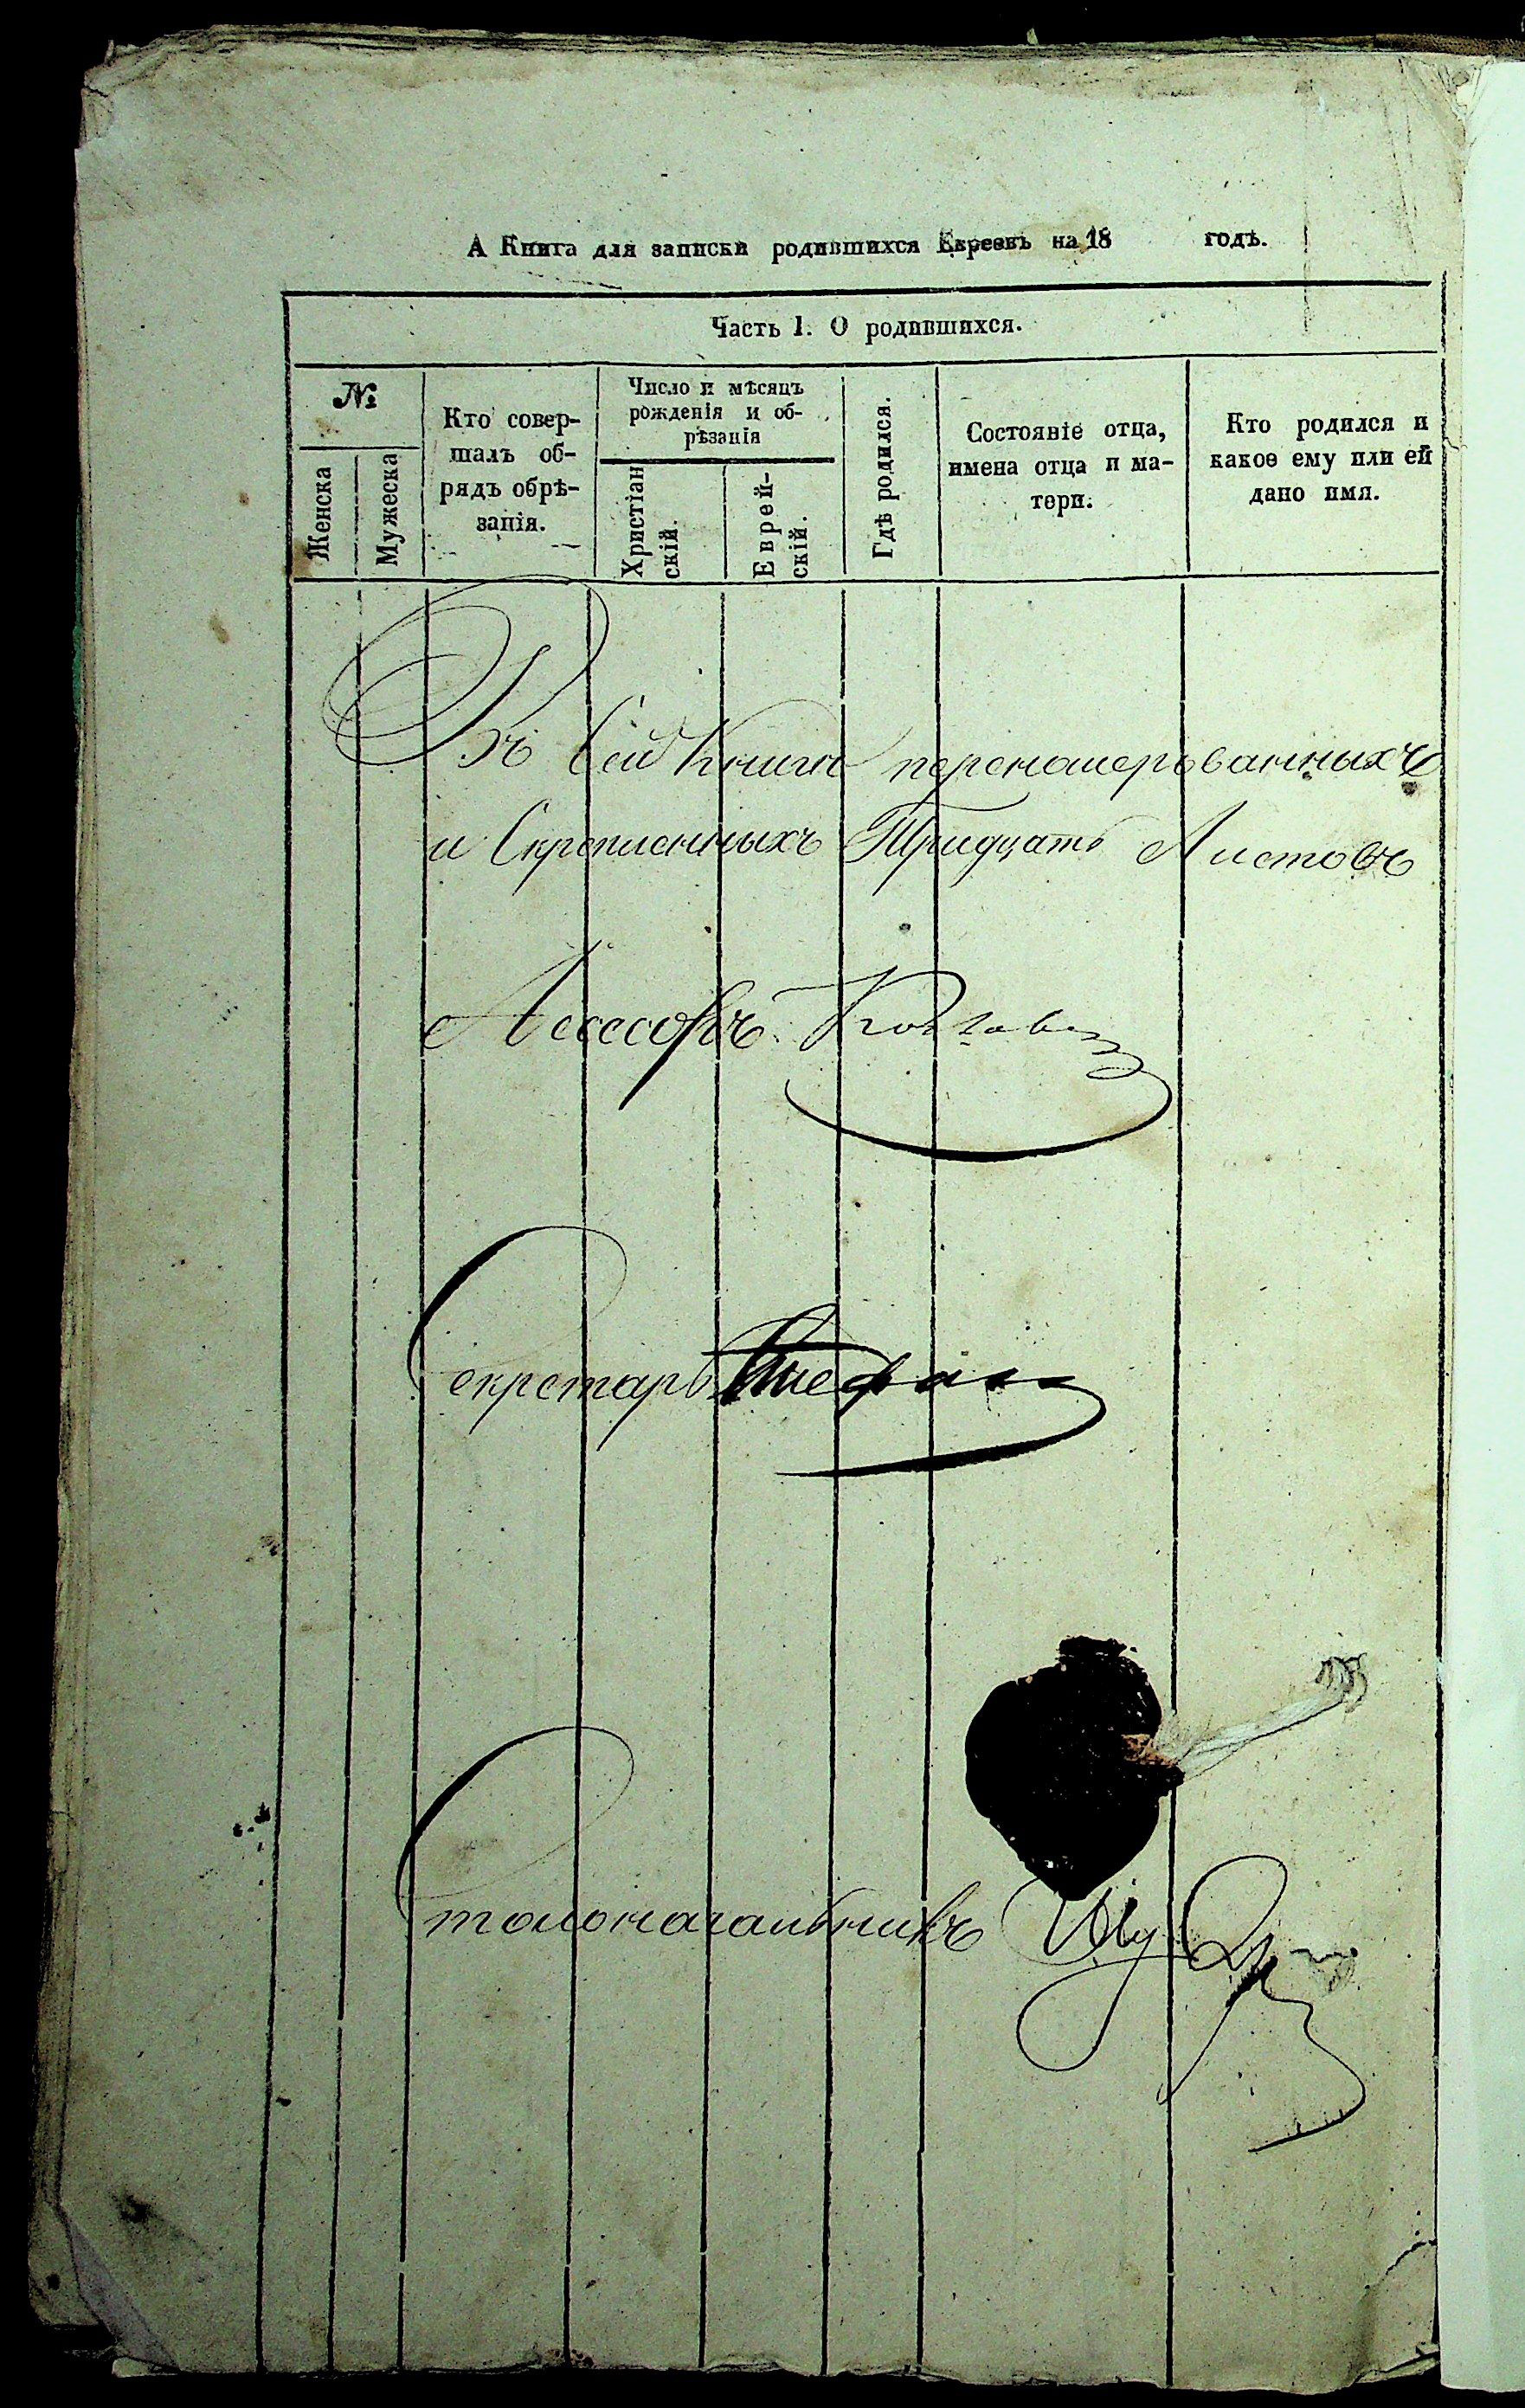 А Книга для записки родившихся Евреевъ на 18 годъ.
Часть 1. О родившихся.
№
Женска
Мужеска
Кто совер-
шалъ об-
рядъ обрѣ-
занія.
Число и мѣсяцъ
рожденія и об-
рѣзанія
Христіан
скій.
Еврей-
скій.
Гдѣ родился.
Состояніе отца,
имена отца и ма-
тери.
Кто родился и
какое ему или ей
дано имя.
Въ Сей Книге перенамерованныхъ
и Скрепленныхъ Тридцать Листовъ
Асесоръ
Секретарь
Столоначальникъ